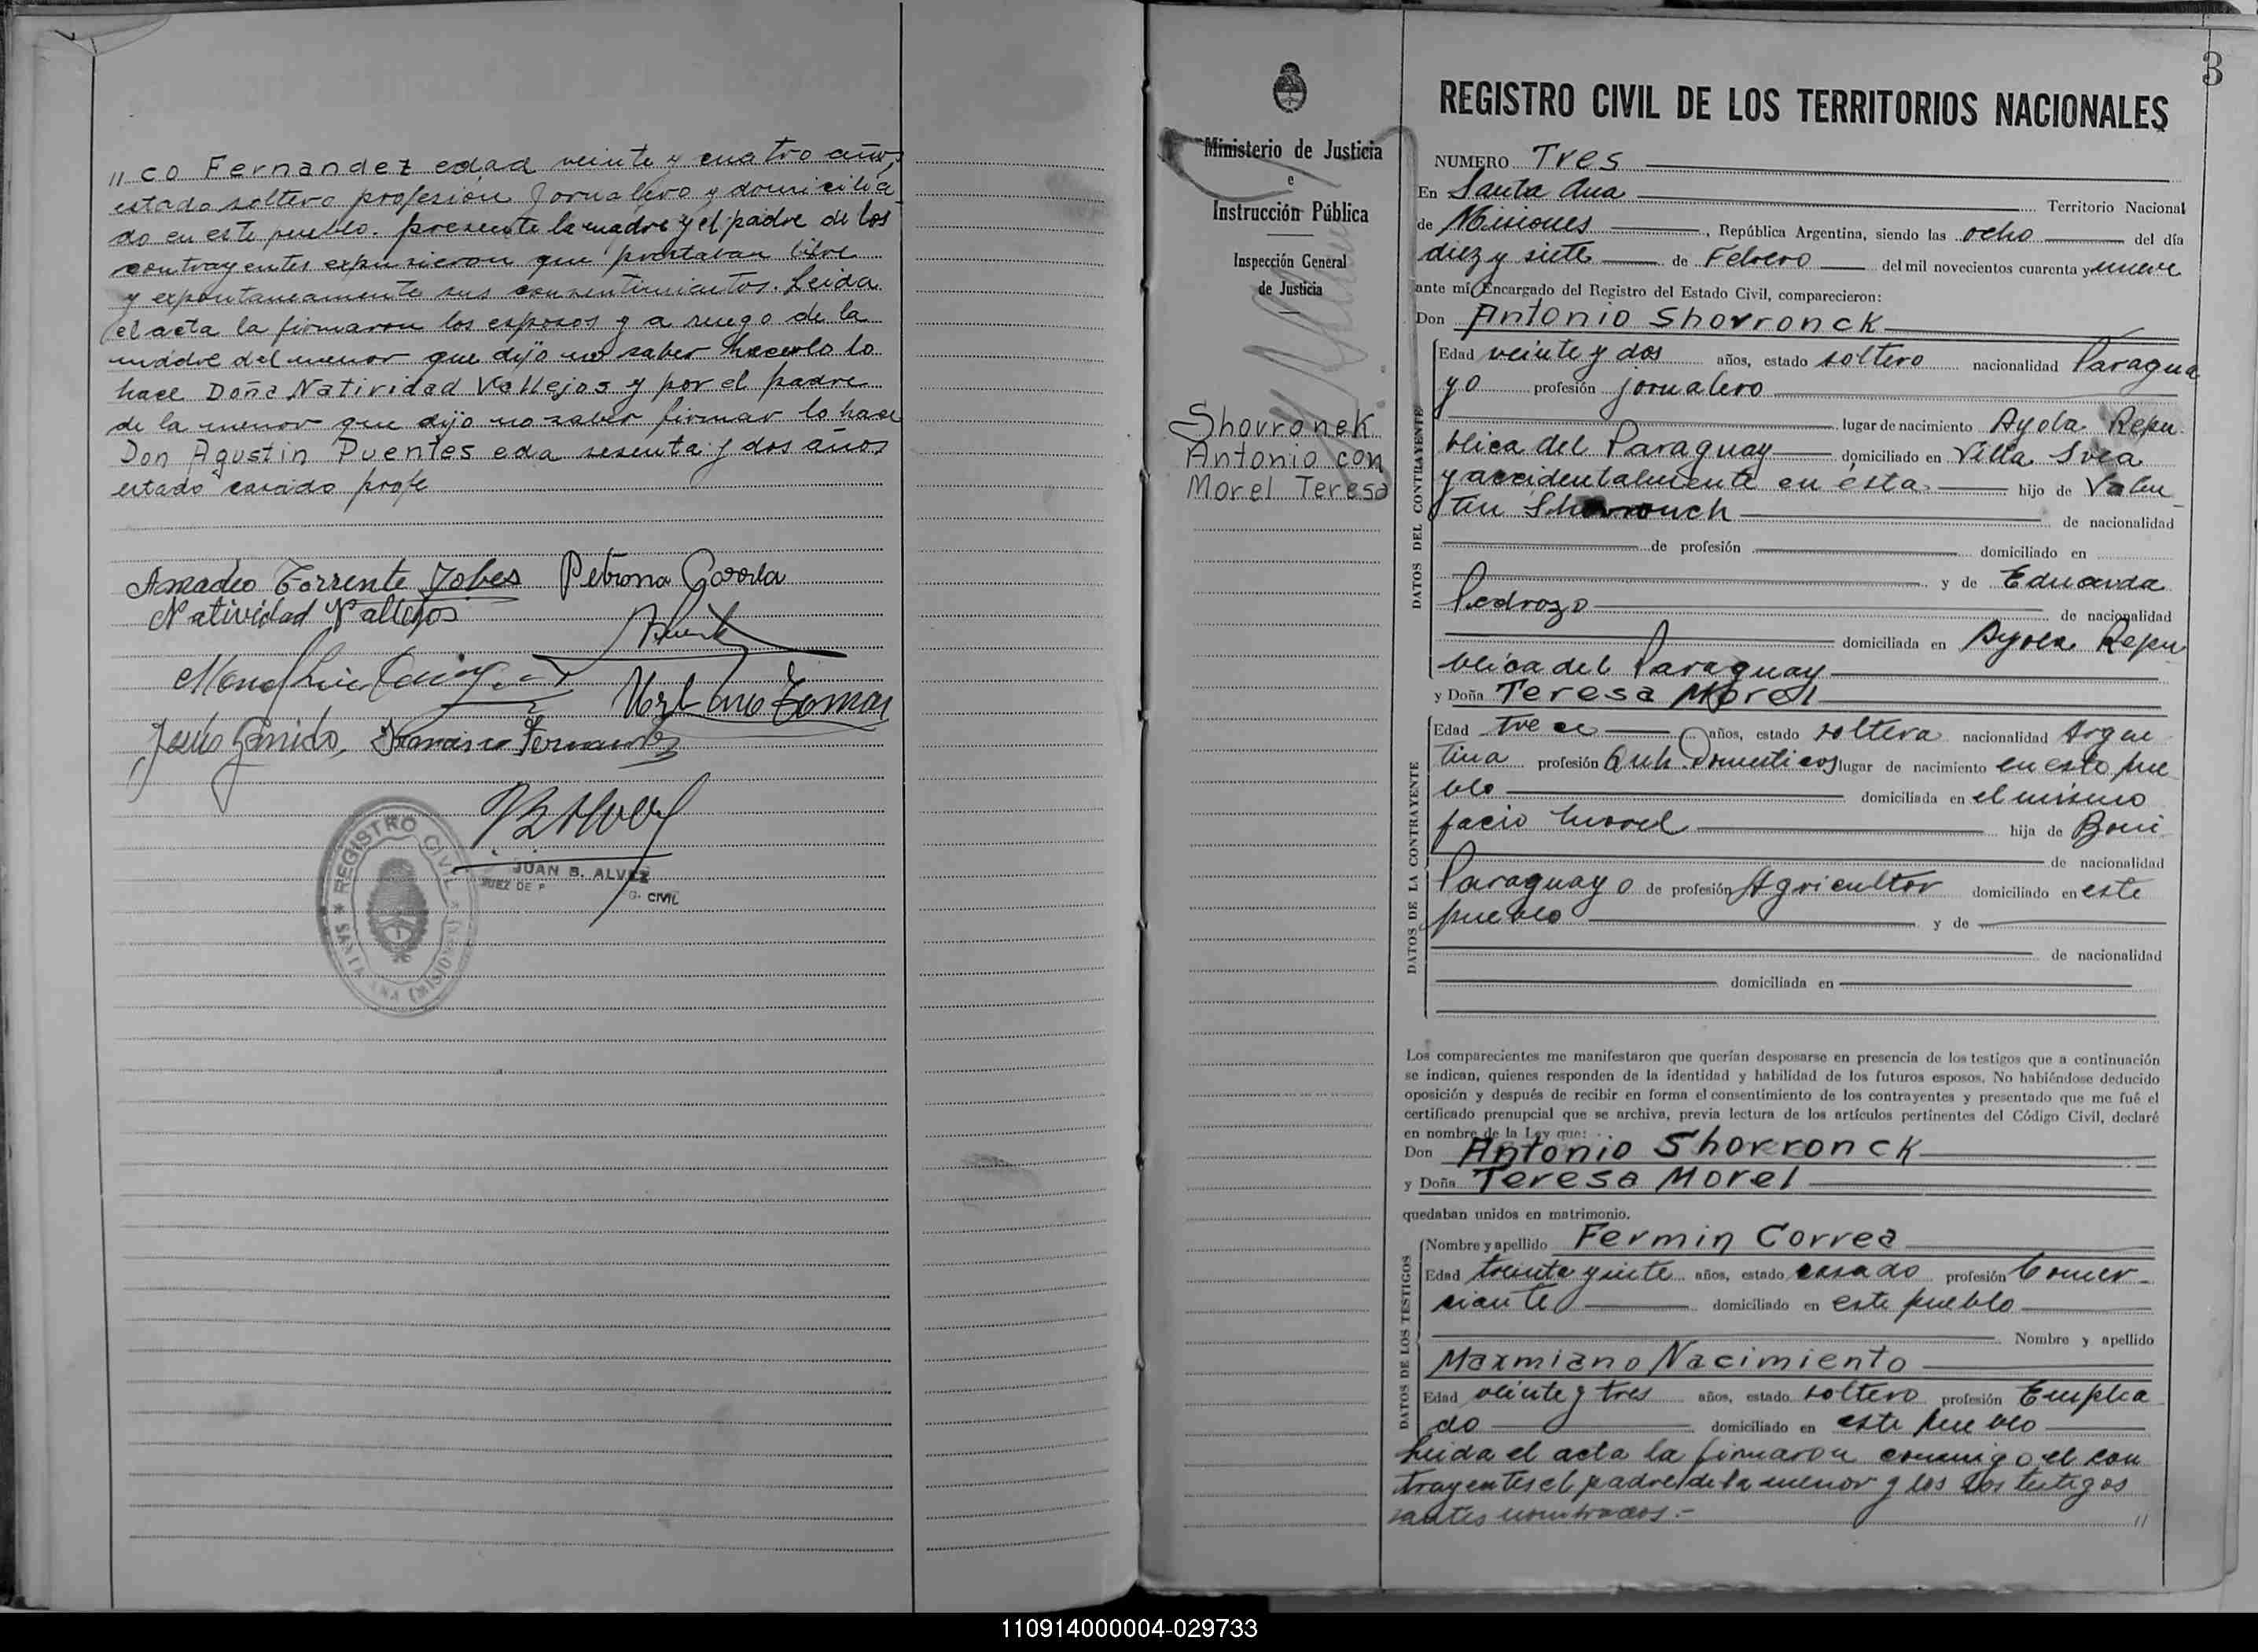 " co Fernandez edad veinte y cuatro años,
estado soltero profesion Jornalero y domicilia
do en este pueblo. presente la madre y el padre de los
contrayentes expusieron que prestaban libre
y expontaneamente sus consentimientos. Leida
el acta la firmaron los esposos y a ruego de la
madre del menor que dijo no saber hacerlo lo
hace Doña Natividad Vallejos y por el padre
de la menor que dijo no saber firmar lo hace
Don Agustin Puentes eda sesenta y dos años
estado casado profe
Amadeo Torrente Petrona
Natividad Vallejos
Jesús Garrido, Francisco Fernandez
REGISTRO CIVIL
SANTA ANA (MISIONES)
JUAN B. ALVEZ
JUEZ DE P
CIVIL
Ministerio de Justicia
e
Instrucción Pública
Inspección General
de Justicia
Shovronek
Antonio con
Morel Teresa
3
REGISTRO CIVIL DE LOS TERRITORIOS NACIONALES
NUMERO Tres
En Santa Ana Territorio Nacional
de Misiones, República Argentina, siendo las ocho del día
diez y siete de Febrero del mil novecientos cuarenta y nueve
ante mí Encargado del Registro del Estado Civil, comparecieron:
Don Antonio Shovronck
DATOS DEL CONTRAYENTE
Edad veinte y dos años, estado soltero nacionalidad Paragua
yo profesión jornalero
lugar de nacimiento Ayola Repu
blica del Paraguay domiciliado en Villa
y accidentalmente en ésta. hijo de Valen
tin de nacionalidad
de profesión domiciliado en
y de Eduarda
Pedrozo de nacionalidad
domiciliada en Ayola Repu
blica del Paraguay
y Doña Teresa Morel
DATOS DE LA CONTRAYENTE
Edad trece años, estado soltera nacionalidad Argen
tina profesión Queh. Domesticos lugar de nacimiento en este pue
blo domiciliada en el mismo
facio Morel hija de Boni
de nacionalidad
Paraguayo de profesión Agricultor domiciliado en este
pueblo y de
de nacionalidad
domiciliada en
Los comparecientes me manifestaron que querían desposarse en presencia de los testigos que a continuación
se indican, quienes responden de la identidad y habilidad de los futuros esposos. No habiéndose deducido
oposición y después de recibir en forma el consentimiento de los contrayentes y presentado que me fué el
certificado prenupcial que se archiva, previa lectura de los artículos pertinentes del Código Civil, declaré
en nombre de la Ley que:
Don Antonio Shovronck
y Doña Teresa Morel
quedaban unidos en matrimonio.
DATOS DE LOS TESTIGOS
Nombre y apellido Fermin Correa
Edad treinta y siete años, estado casado profesión Comer-
siante domiciliado en este pueblo
Nombre y apellido
Maxmiano Nacimiento
Edad veinte y tres años, estado soltero profesión Emplea
do domiciliado en este pueblo
Leida el acta la firmaron conmigo el con
trayentes el padre de la menor y los dos testigos
antes nombrados.- "
110914000004-029733